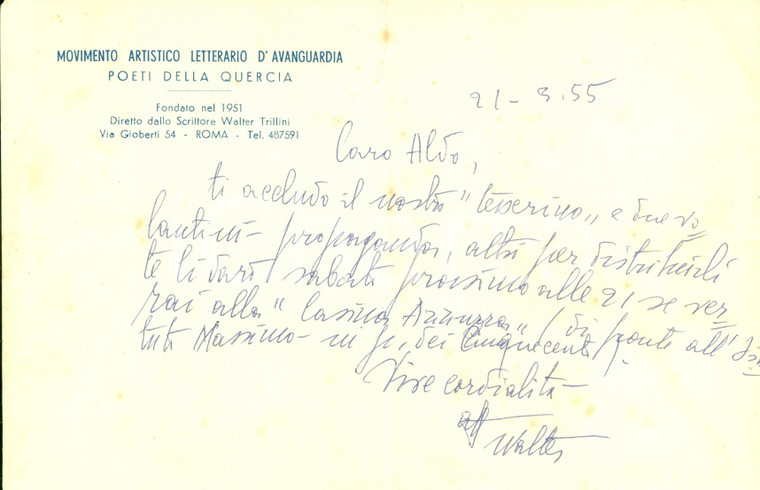 MOVIMENTO ARTISTICO LETTERARIO D'AVANGUARDIA
POETI DELLA QUERCIA
Fondato nel 1951
Diretto dallo Scrittore Walter Trillini
Via Gioberti 54 - ROMA - Tel. 487591
21-3.55
Caro Aldo,
ti accludo il nostro "tesserino" e due vo
lantini-propaganda, altri per distribuirli
te li darò sabato prossimo alle 21 se ver
rai alla "Casina Azzurra" (di fronte all'
tuto Massimo - in p. dei Cinquecento).
Vive cordialità
Walter